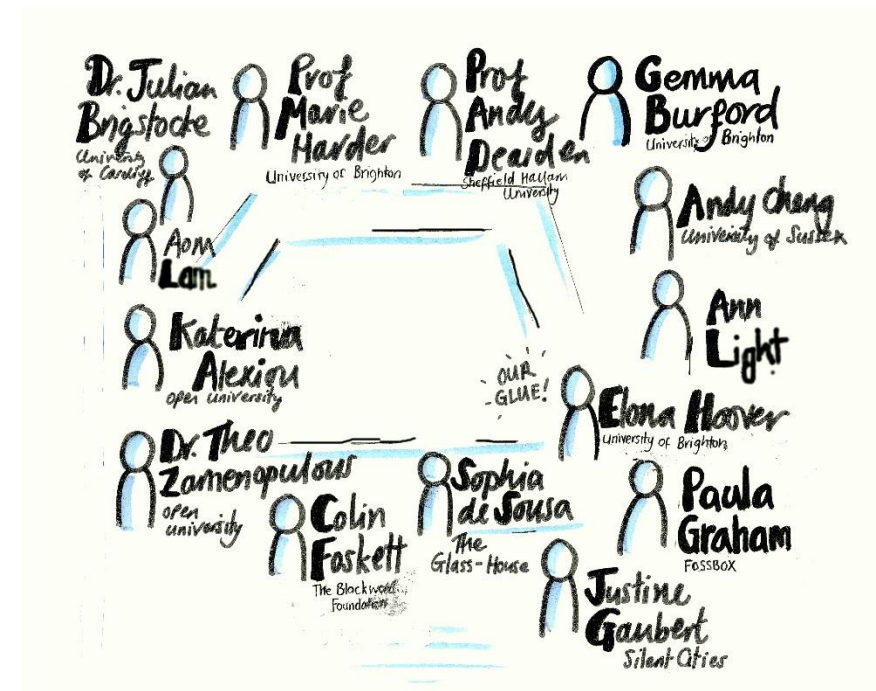 Dr. Julian
Brigstocke
University
of Cardiff
Prof
Marie
Harder
University of Brighton
Prof
Andy
Dearden
Sheffield Hallam
University
Gemma
Burford
University of Brighton
Aom
Lam
Andy Cheng
University of Sussex
Katerina
Alexiou
open university
Ann
Light
OUR
GLUE!
Elona Hoover
University of Brighton
Dr. Theo
Zamenopulous
open
university
Colin
Foskett
The Blackwood
Foundation
Sophia
de Sousa
The
Glass-House
Paula
Graham
FOSSBOX
Justine
Gaubert
Silent Cities